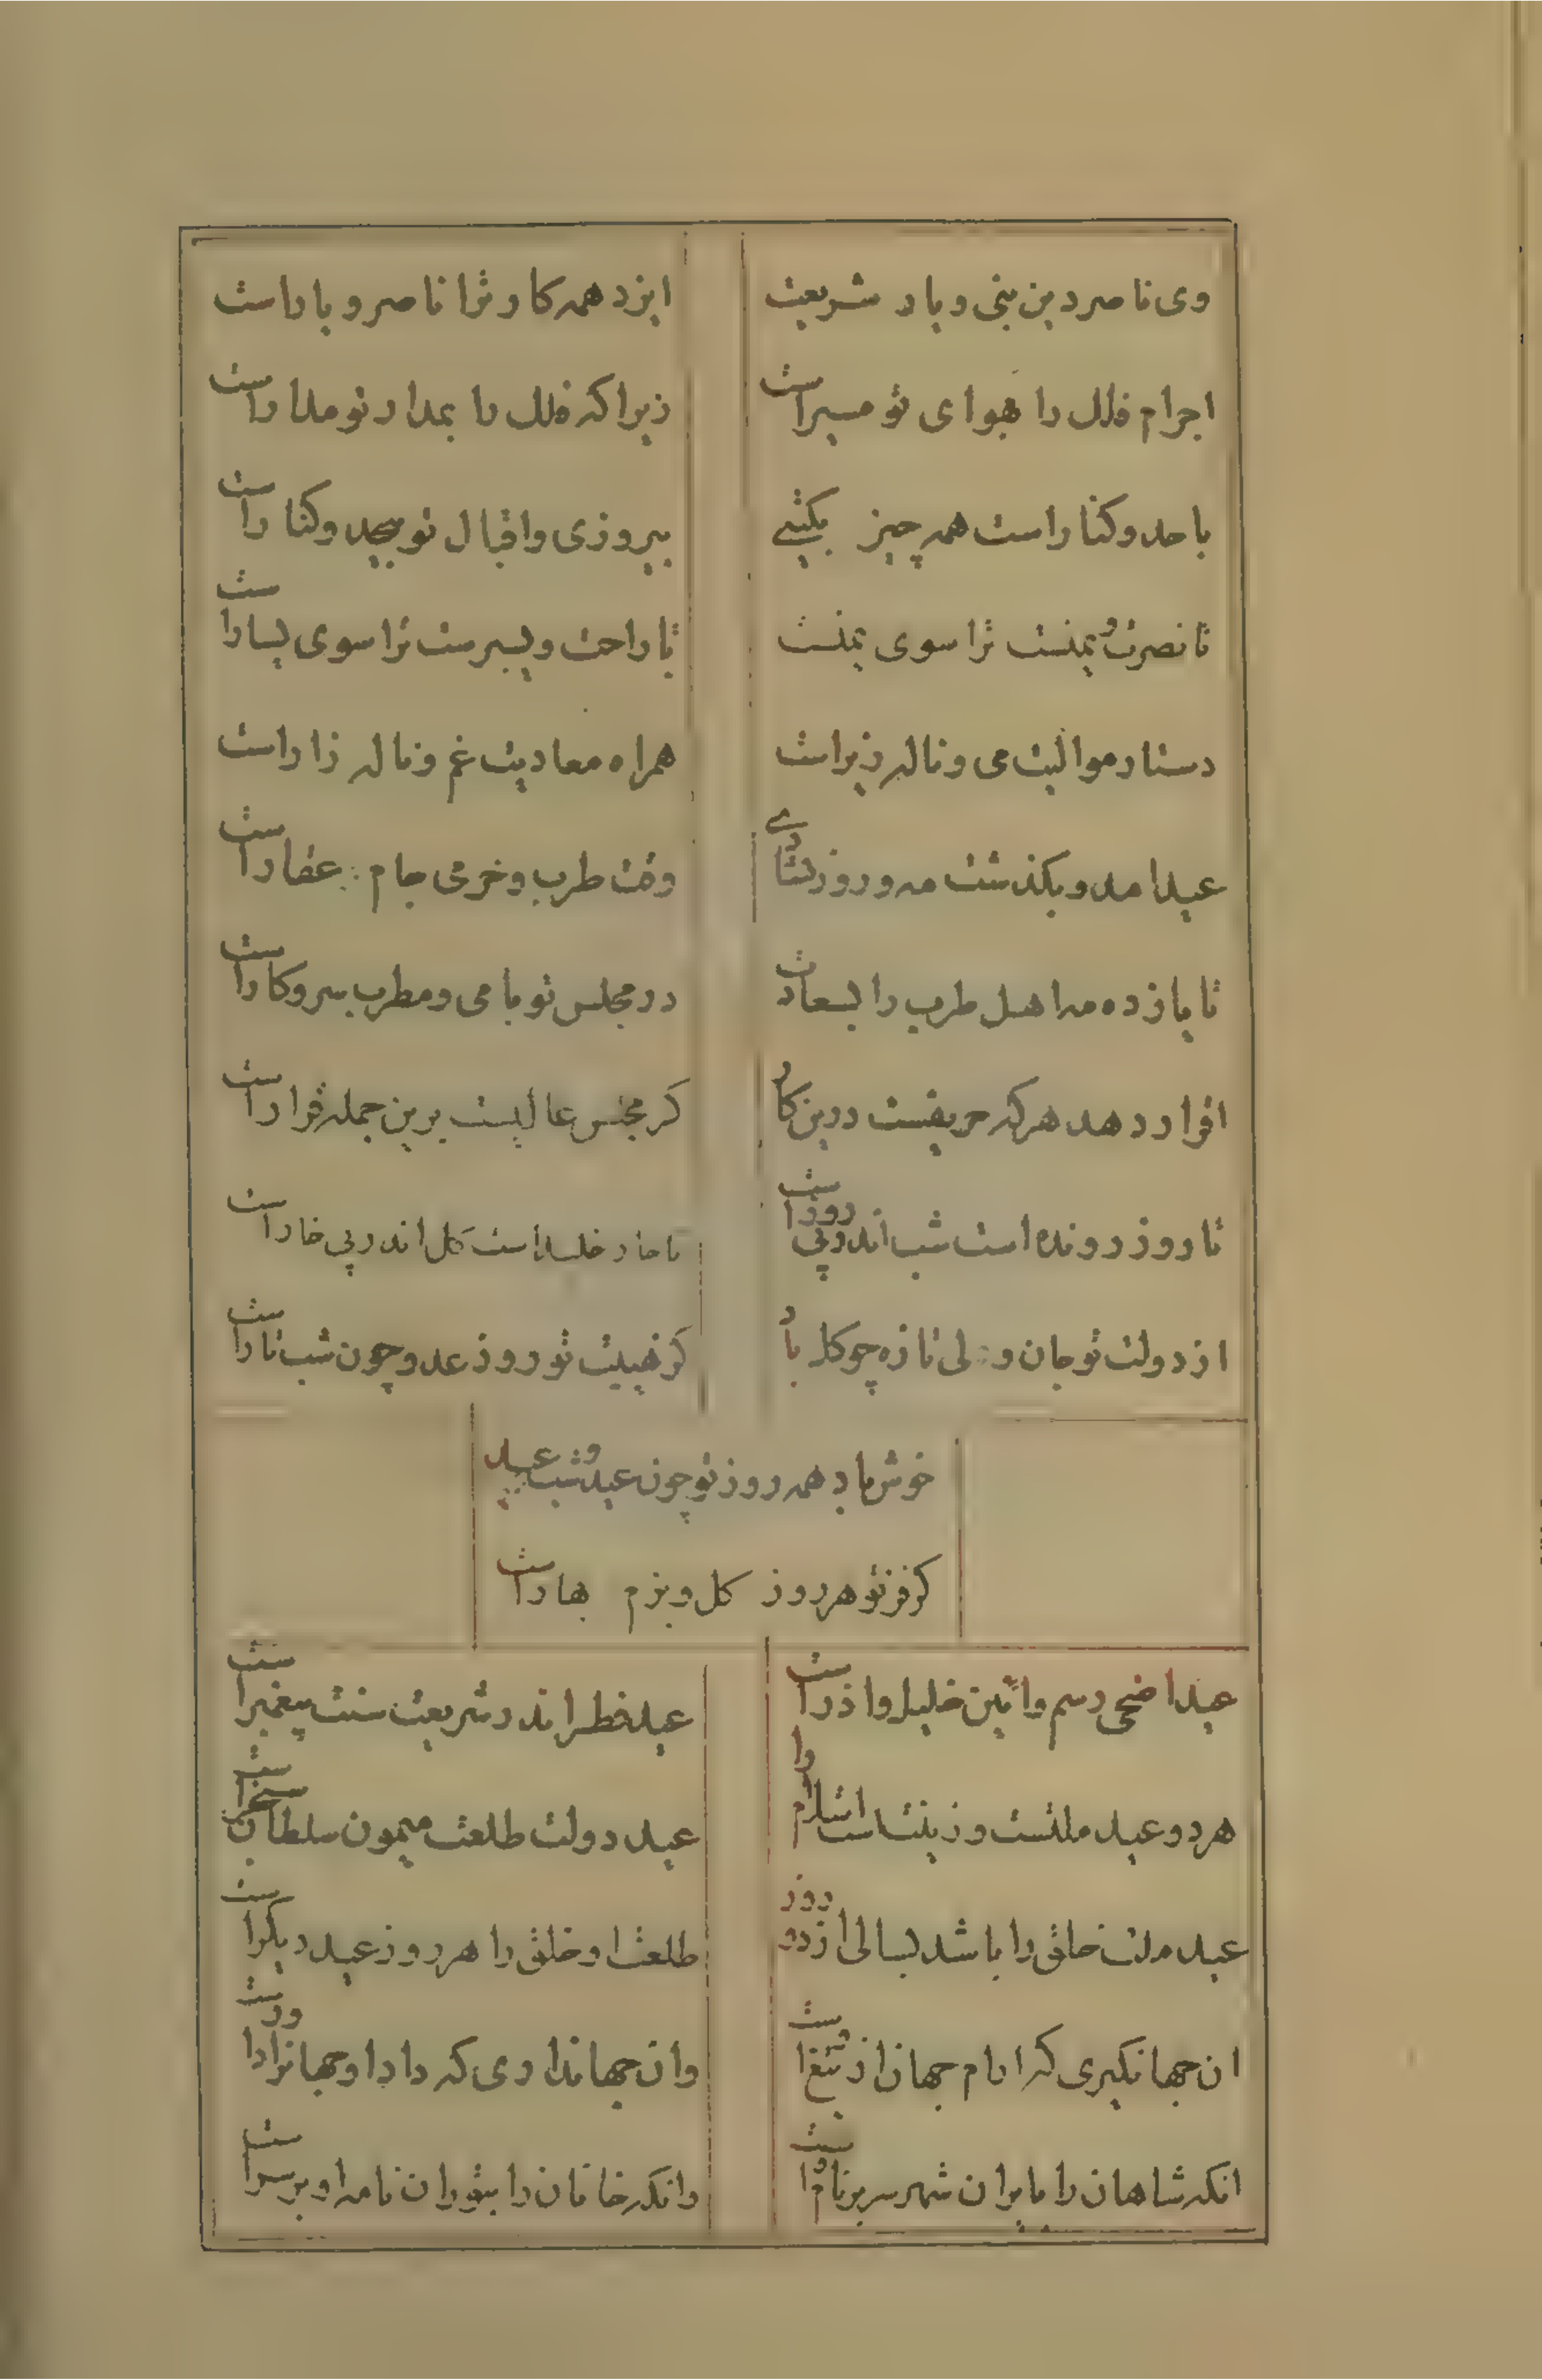 وی ناصر دین نبی و یار شریعت
ایزد همه کار ترا ناصر و یاراست
اجرام فلک را بهوای تو مسیراست
زیرا که فلک را بمدار تو مداراست
با حد و کناراست همه چیز بگیتی
پیروزی و اقبال تو بیحد و کناراست
تا نصرت و یمنست ترا سوی یمنست
تا راحت و یسرست ترا سوی یساراست
دستار موالیت می و ناله زیراست
همراه معادیت غم و ناله زاراست
عید امد و بکذشت مه و روز
وقت طرب و خرمی جام عقاراست
تا یازده مه اهل طرب را بسعادت
در مجلس تو با می و مطرب سر و کاراست
اقرار دهد هر که حریفست درین کار
کز مجلس عالیست برین جمله قراراست
تا روز رونده است شب اندر پی روزاست
تا خار خلیداست کل اندر پی خاراست
از دولت تو جان ولی تازه چو کل باد
کز هیبت تو روز عدو چون شب تاراست
خوش باد همه روز تو چون عید و شب عید
کز فر تو هر روز کل و بزم بهاراست
عید اضحی رسم و ائین خلیل و اذراست
عید فطر اندر شریعت سنت پیغمبراست
هر دو عید ملتست و زینت است اسلام را
عید دولت طلعت میمون سلطان سنجراست
عید ملت خلق را باشد بسالی از دو روز
طلعت او خلق را هر روز عید دیکراست
ان جهانکیری که ارام جهان از تیغ اوست
وان جهانداری که داد او جهانرا داورست
انکه شاهان را بایران شهر سر بر نام اوست
وانکه خانان را بتوران نامه او بر سراست